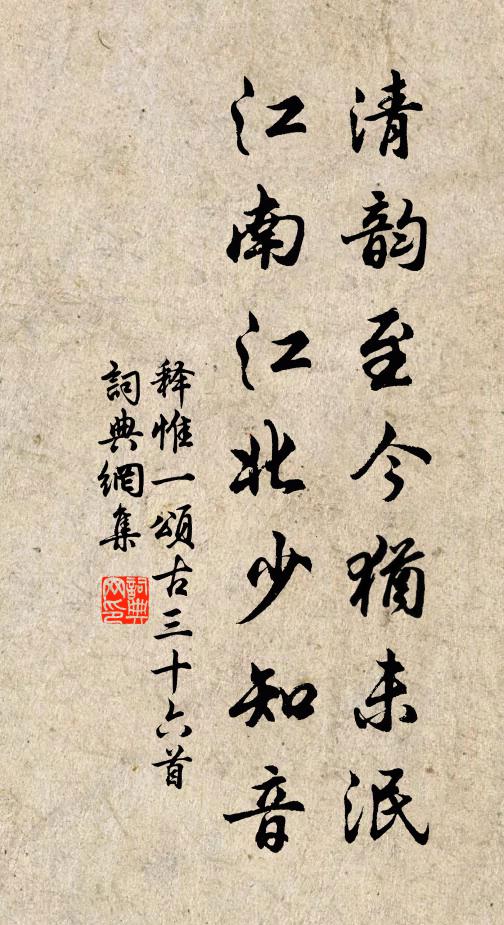 清韵至今犹未泯
江南江北少知音
释惟一頌古三十六首
詞典網集
詞典網印